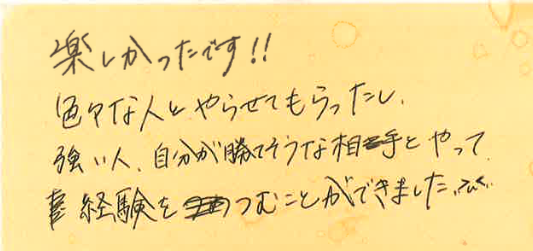 楽しかったです!!
色々な人とやらせてもらったし、
強い人、自分が勝てそうな相手とやって
経験をつむことができました。